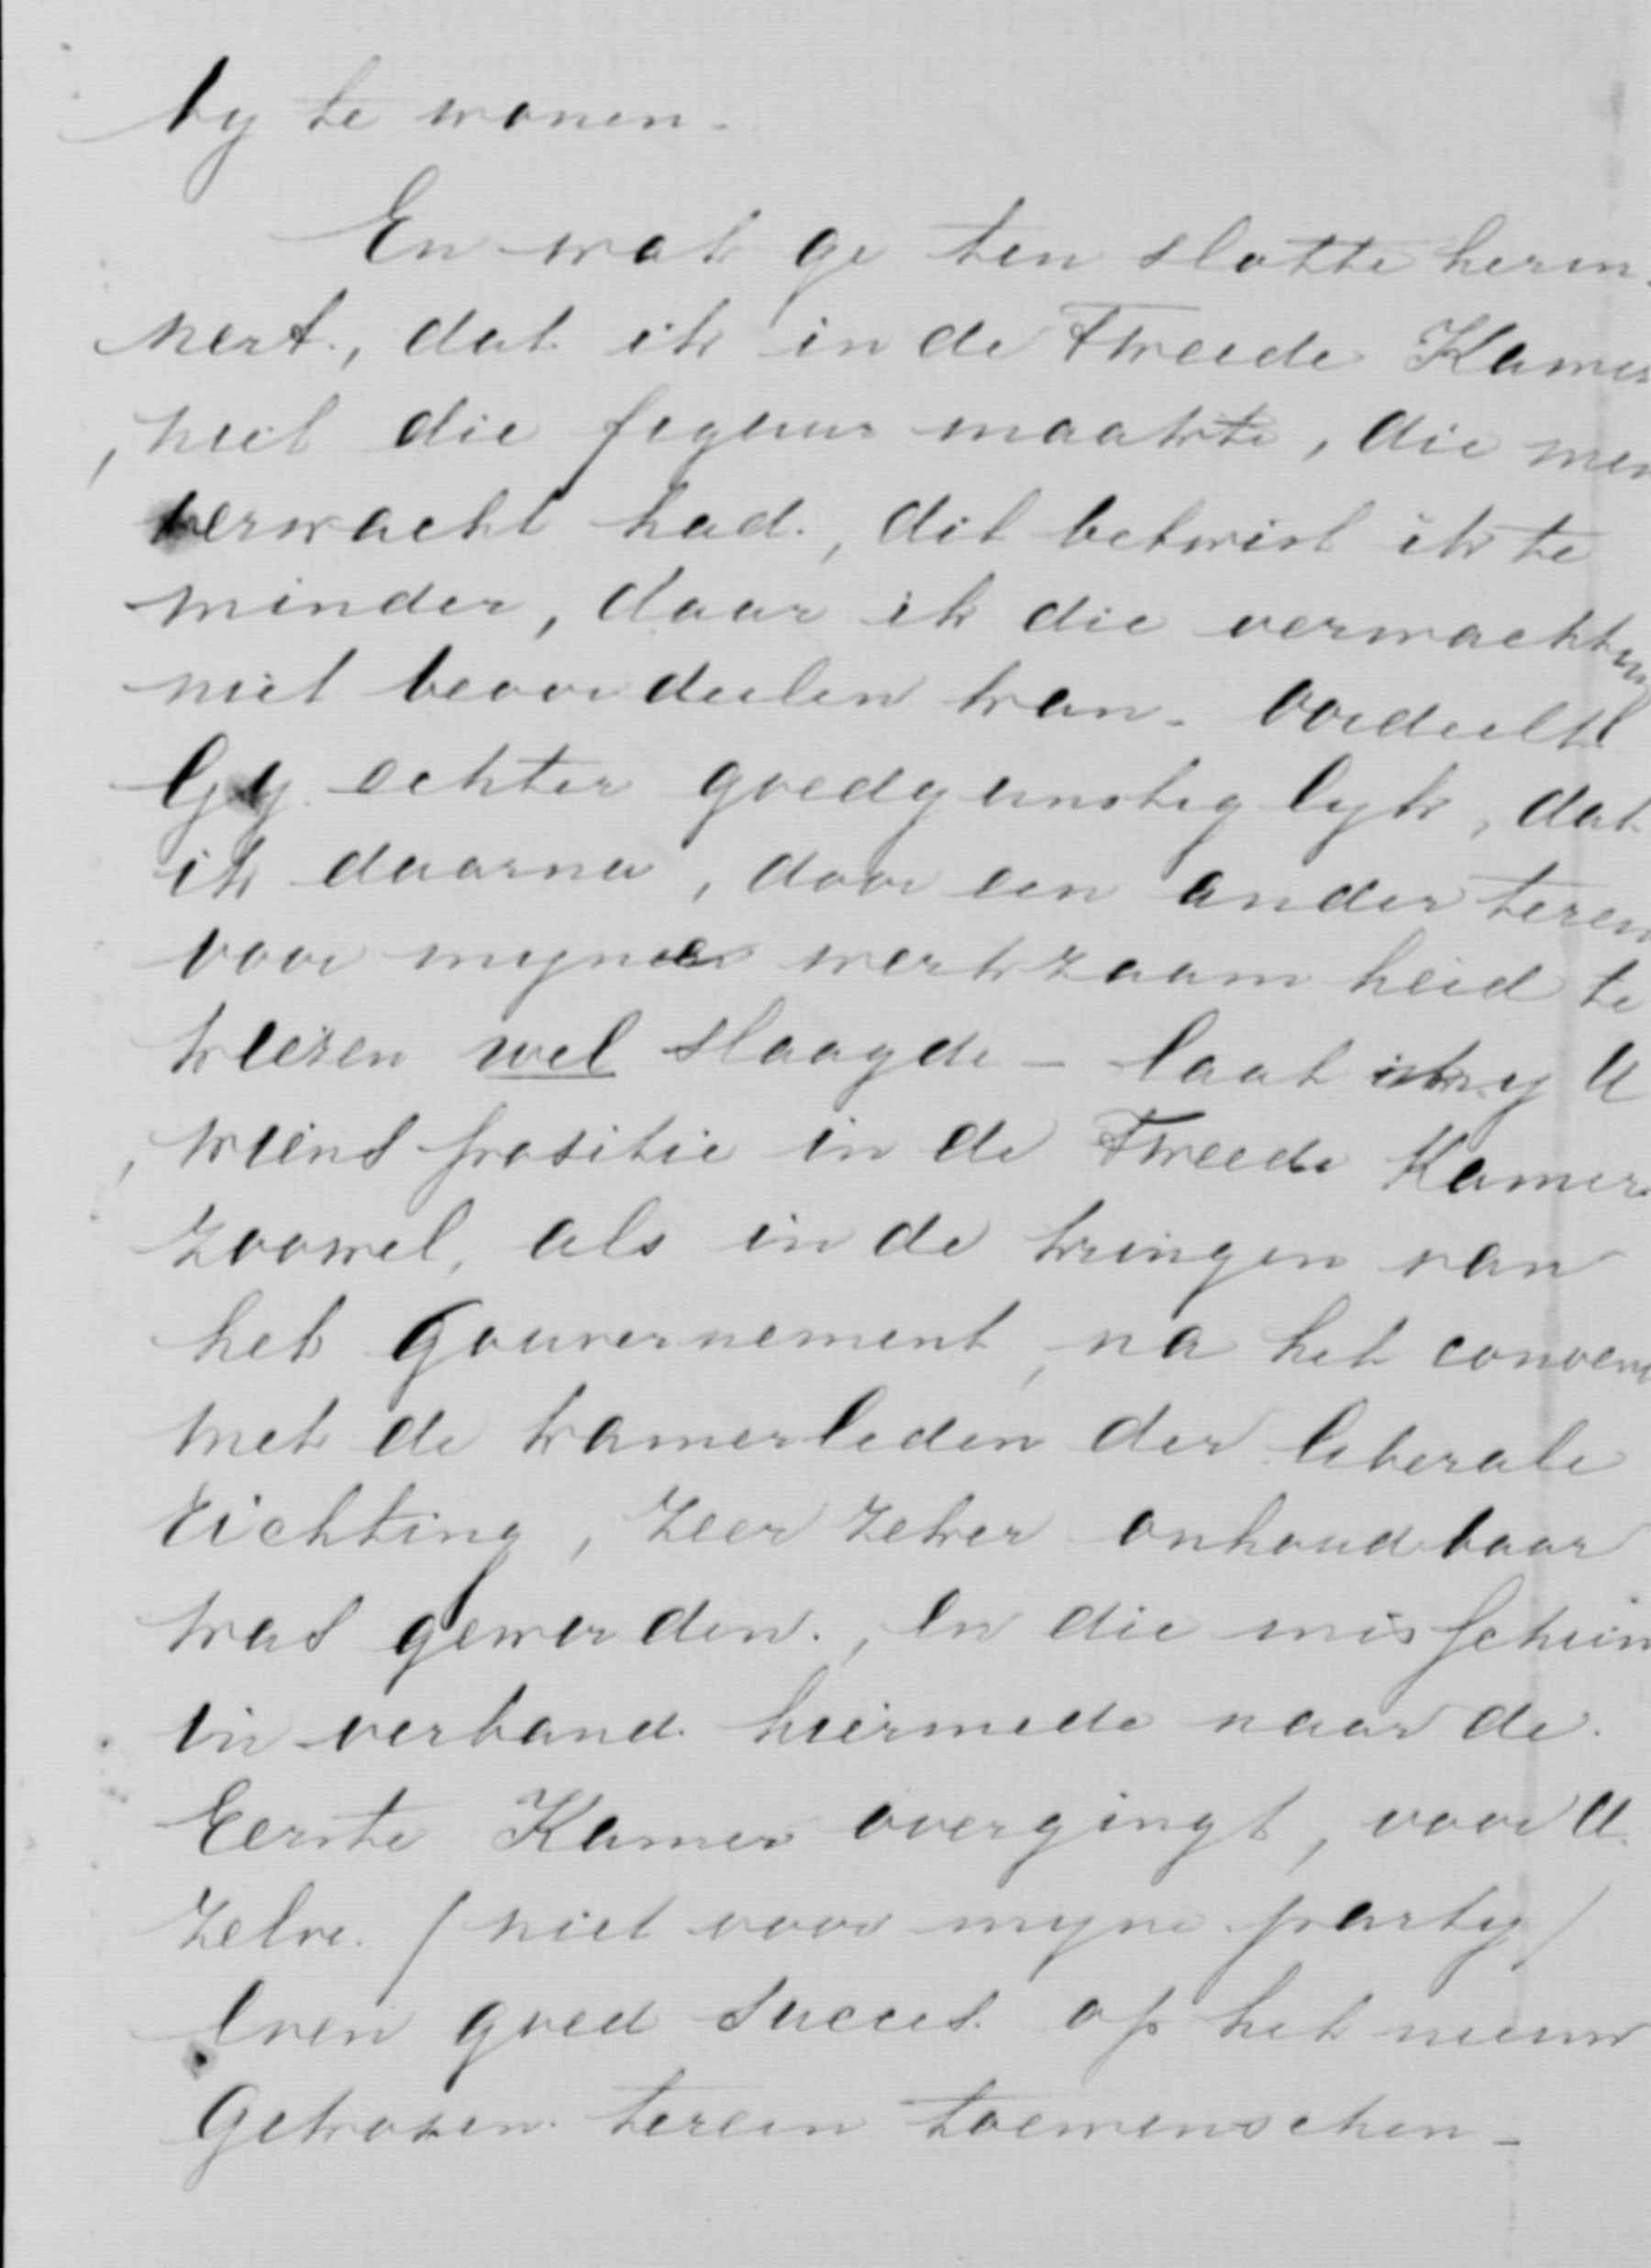 by te wonen.
En wat ge ten slotte herin-
nert, dat ik in de Tweede Kamer
niet die figuur maakte, die men
verwacht had, dit betwist ik te
minder, daar ik die verwachting
niet beoordeelen kan. Oordeelt
Gy echter goedgunstiglyk, dat
ik daarna, door een ander terein
voor myne werkzaamheid te
kiezen wel slaagde - laat my U
wiens positie in de Tweede Kamer
zoowel, als in de kringen van
het Gouvernement, na het conven
met de kamerleden der liberale
richting, zeer zeker onhoudbaar
was geworden, en die misschien
in verband hiermede naar de
Eerste Kamer overgingt, voor U
zelve (niet voor myne party)
even goed succes op het nieuw
gekozen terein toewenschen -